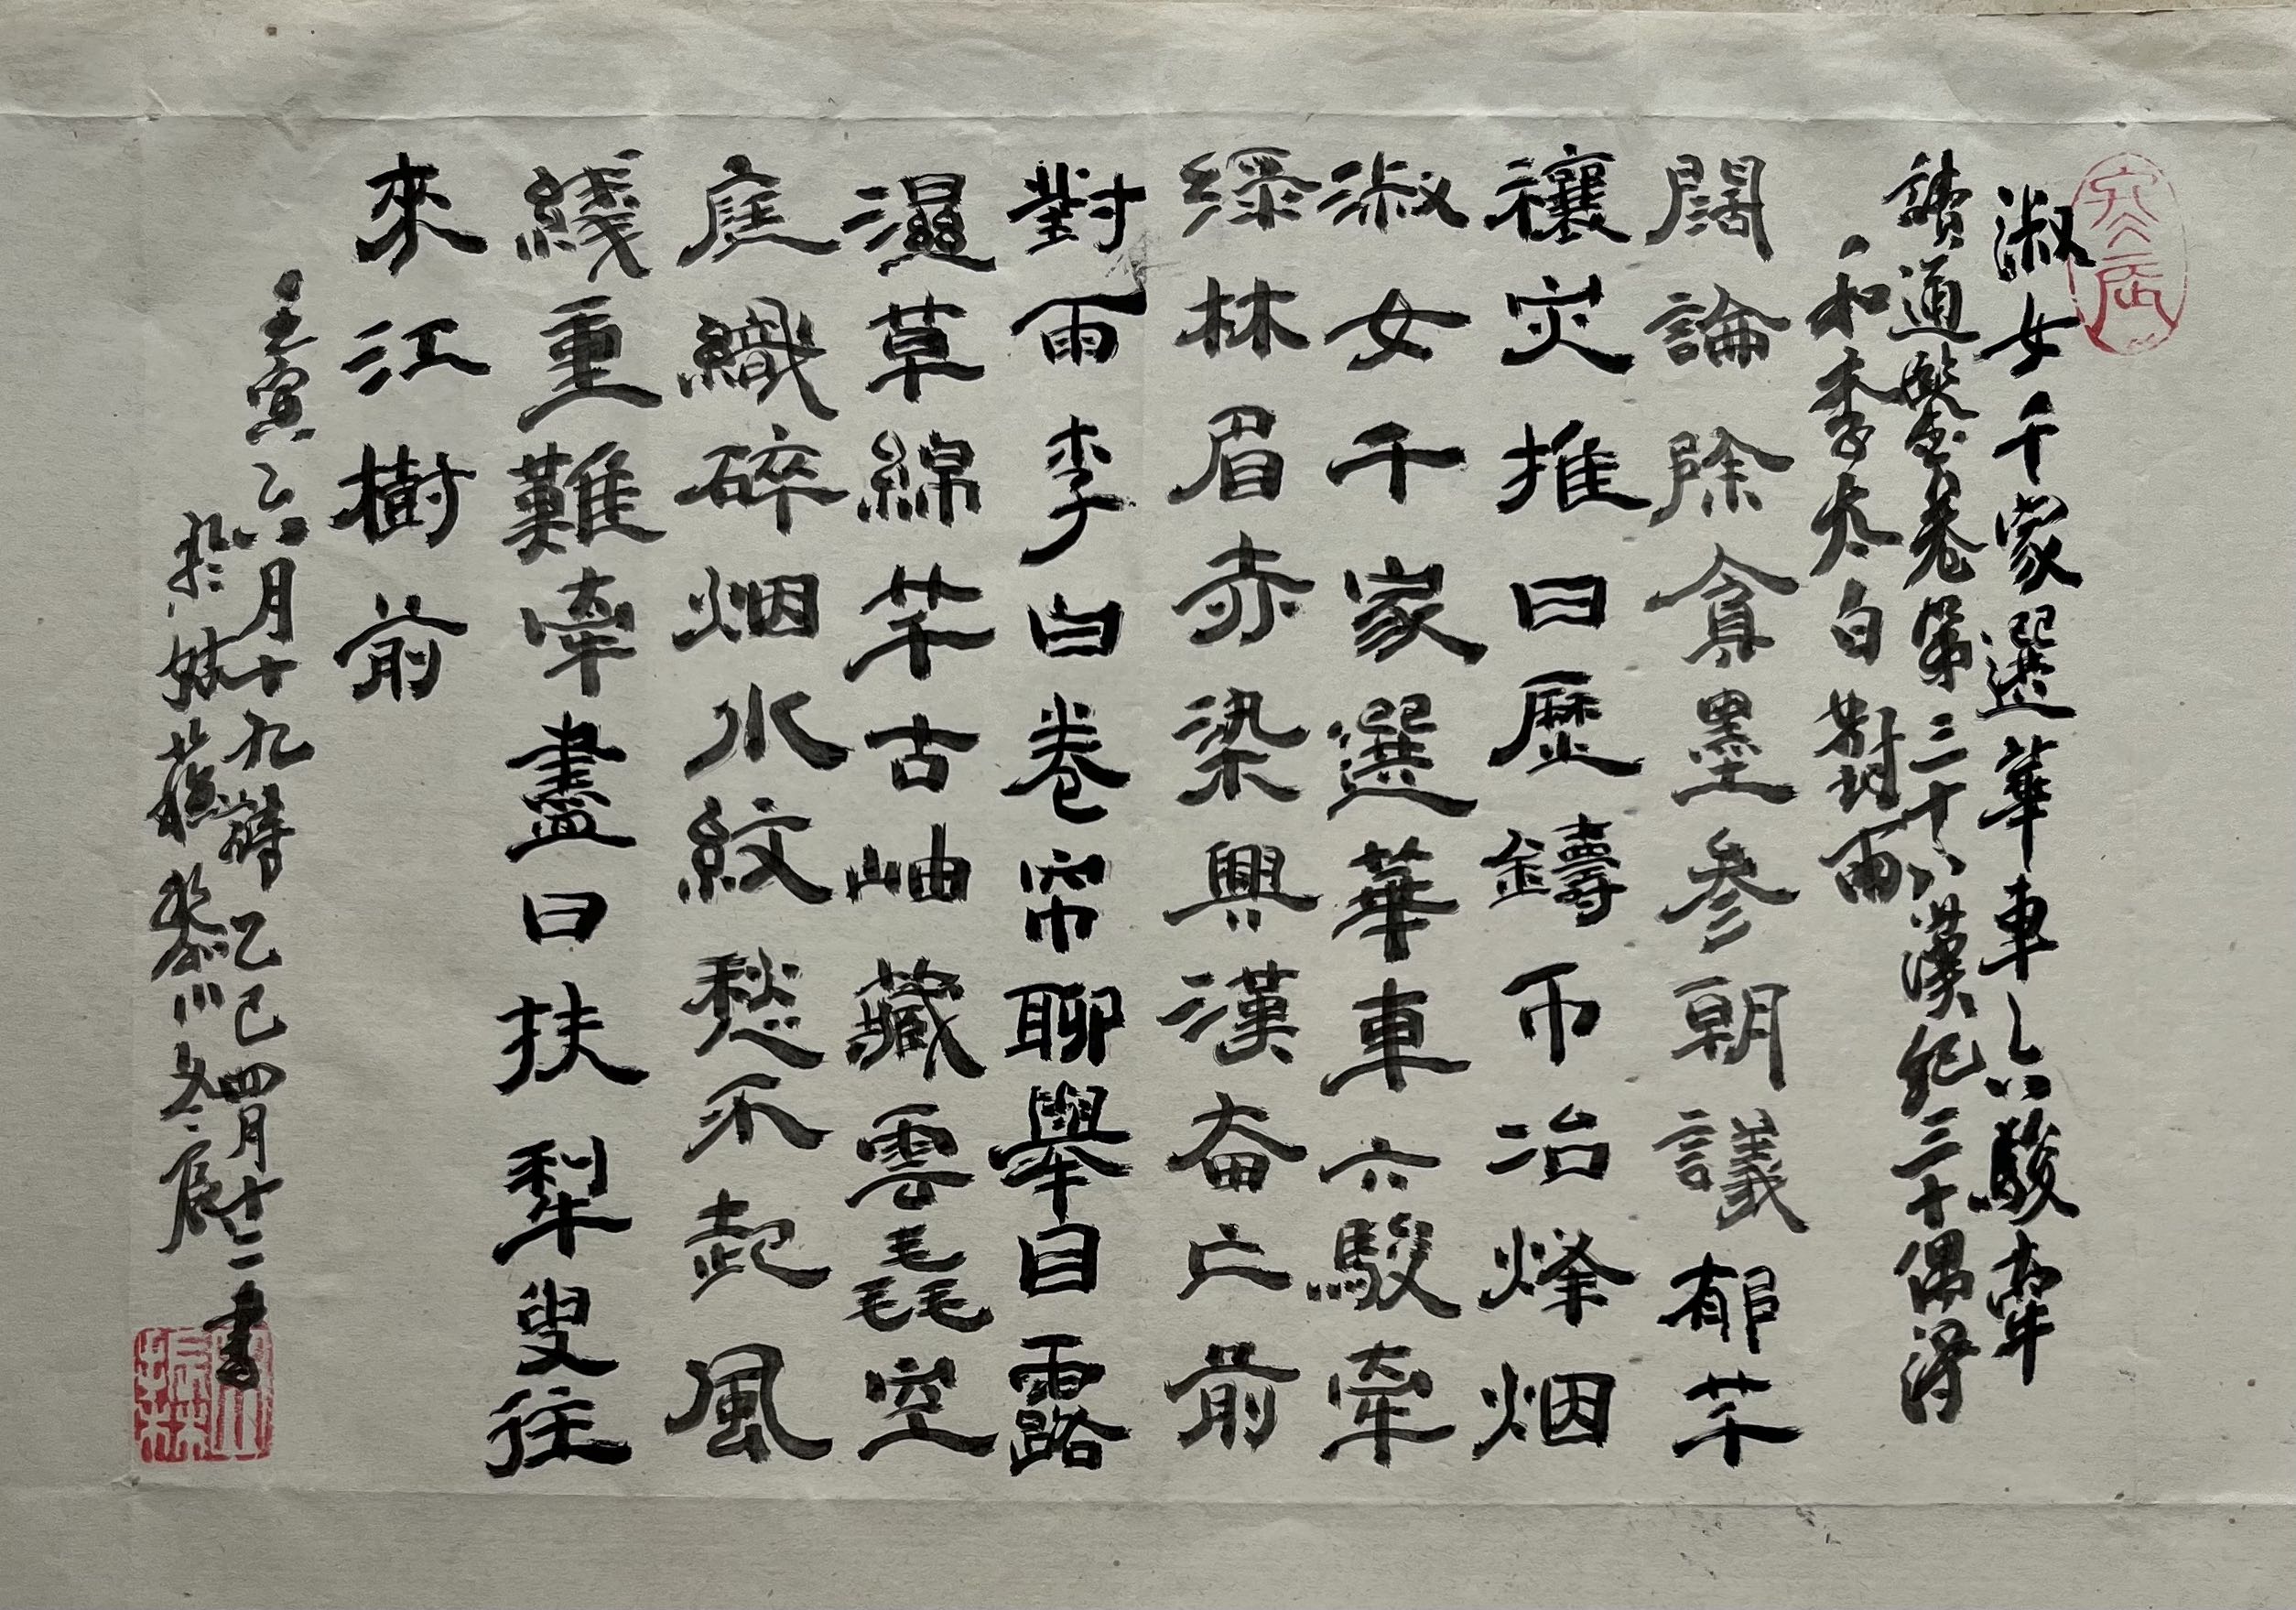 淑女千家選華車六駿牽
讀道鑒卷第三十八漢紀三十偶得
和李太白對雨
闊論除貪墨參朝議郁芊
禳灾推曰歷鑄币冶烽烟
淑女千家選華車六駿牽
綠林眉赤染興漢奋亡前
對雨李白卷帘聊舉目露
濕草綿芊古岫藏雲毳空
庭織碎烟水紋愁不起風
綫重難牽盡日扶犁叟往
來江樹前
壬寅六月十九 乙巳四月十二書
於妹